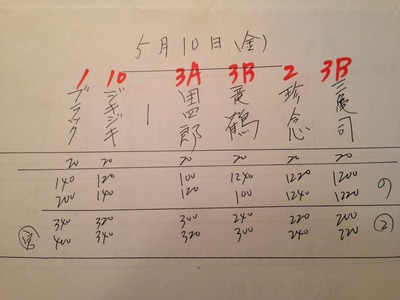 5月10日(金)
1 10 3A 3B 2 3B
ブラック
ジキジキ
団四郎
鶴
珍念
三亀司
20 20 20 20 20 20
140 120 100 1240 1220 1200 の
200 140 120 100 1240 1220
340 320 300 240 220 200 ②
400 340 320 300 240 220